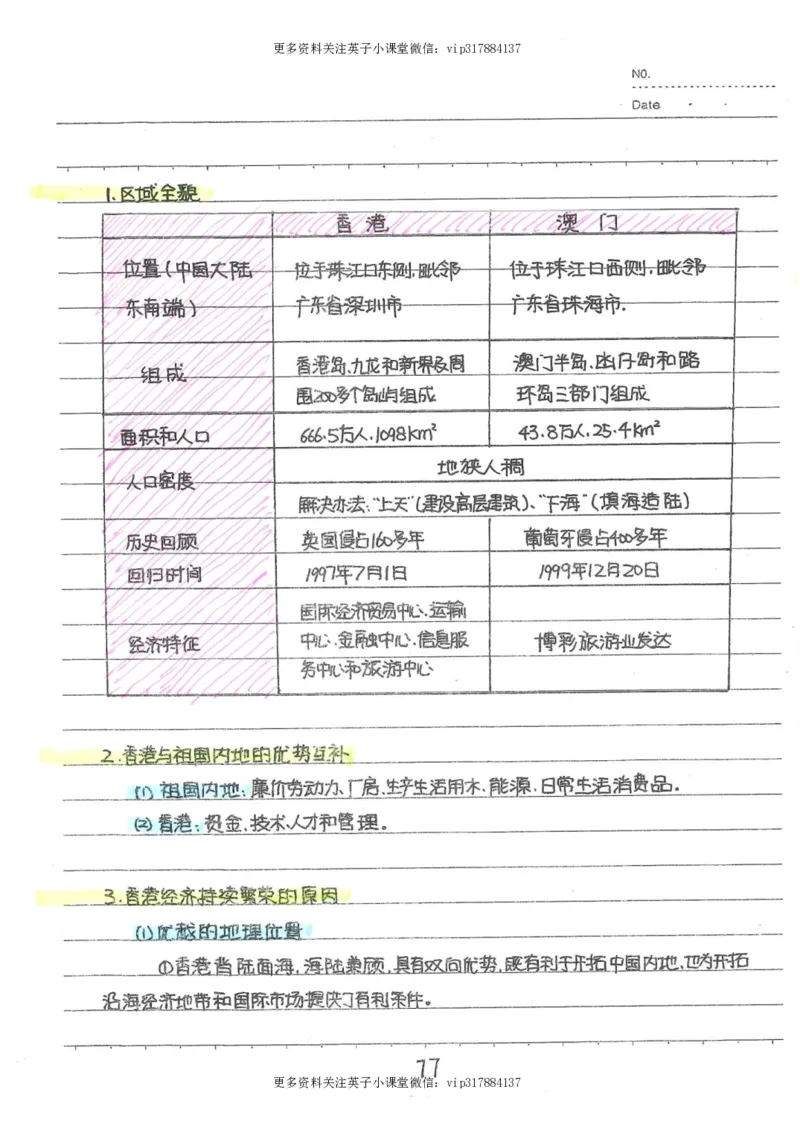 更多资料关注英子小课堂微信：vip317884137
NO.
Date
1.区域全貌
香港 澳门
位置(中国大陆 位于珠江口东侧,毗邻 位于珠江口西侧,毗邻
东南端) 广东省深圳市 广东省珠海市.
组成 香港岛、九龙和新界及周 澳门半岛、凼仔岛和路
围200多个岛屿组成 环岛三部门组成
面积和人口 666.5万人.1098km² 43.8万人.25.4km²
人口密度 地狭人稠
解决办法:"上天"(建设高层建筑)、"下海"(填海造陆)
历史回顾 英国侵占160多年 葡萄牙侵占400多年
回归时间 1997年7月1日 1999年12月20日
国际经济贸易中心、运输
经济特征 中心、金融中心、信息服 博彩旅游业发达
务中心和旅游中心
2.香港与祖国内地的优势互补
(1)祖国内地:廉价劳动力、厂房、生产生活用水、能源、日常生活消费品。
(2)香港:资金、技术、人才和管理。
3.香港经济持续繁荣的原因
(1)优越的地理位置
①香港背陆面海,海陆兼顾,具有双向优势,既有利于开拓中国内地,也为开拓
沿海经济地带和国际市场提供了有利条件。
77
更多资料关注英子小课堂微信：vip317884137